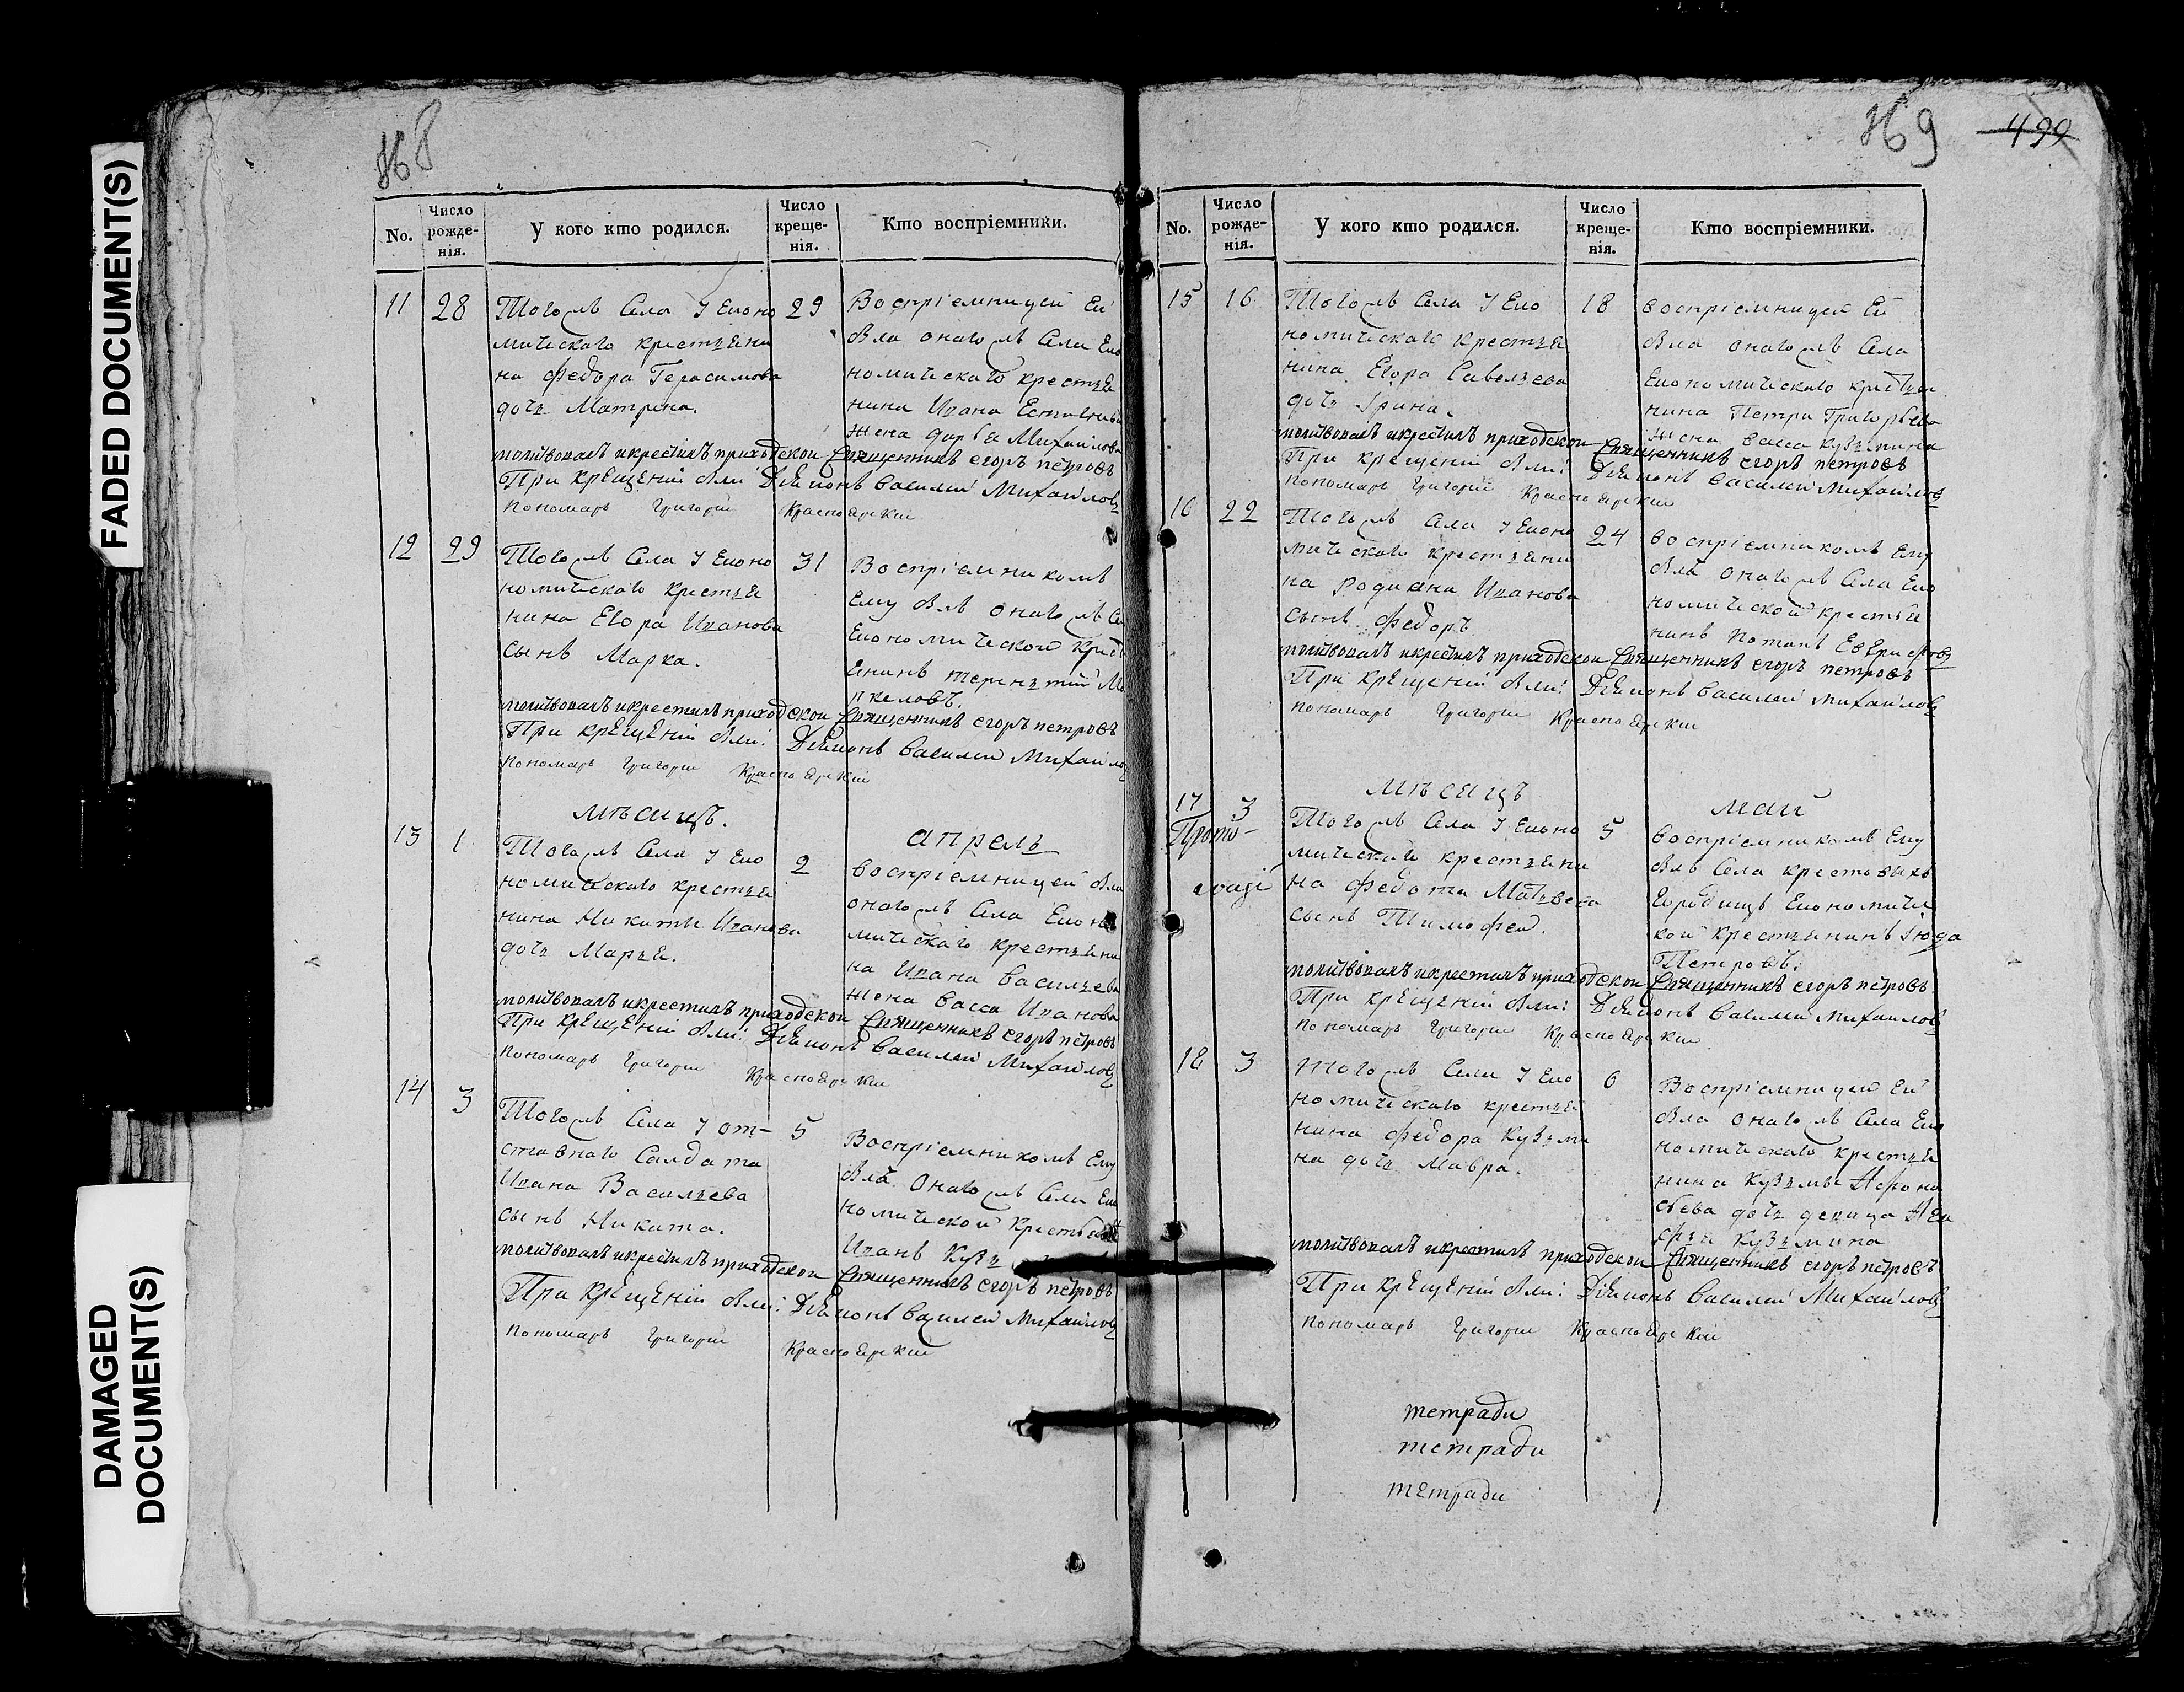 FADED DOCUMENT(S)
DAMAGED
DOCUMENT(S)
468
No.
Число рожденія.
У кого кто родился.
Число крещенія.
Кто воспріемники.
11
28
Тогожъ Села у Еконо
мическаго крестьяни
на Федора Герасимова
дочь Матрена.
29
Воспріемницей Ей
была онагожъ Села Еко
номическаго крестья
нина Ивана
жена Дарья Михайлова
молитвовалъ и крестилъ приходской Священникъ Егоръ Петровъ
При крещеніи были: Діяконъ Василей Михайловъ
Пономарь Григорій Красноярскій
12
29
Тогожъ Села у Еконо
номическаго крестья
нина Егора Иванова
сынъ Марка.
31
Воспріемникомъ
ему былъ онагожъ Се
Економической крест
янинъ терентій
молитвовалъ и крестилъ приходской Священникъ Егоръ Петровъ
При крещеніи были: Діяконъ Василей Михайловъ
Пономарь Григорій Красноярскій
мѣсяцъ.
апрель
13
1
Тогожъ Села у Еко
номическаго крестья
нина Никиты Иванова
дочь Марья.
2
воспріемницей была
онагожъ Села Еконо
мическаго крестьяни
на Ивана Васильева
жена васса Иванова
молитвовалъ и крестилъ приходской Священникъ Егоръ Петровъ
При крещеніи были: Діяконъ Василей Михайловъ
Пономарь Григорій Красноярскій
14
3
Тогожъ Села у от-
ставнаго Салдата
Ивана Васильева
сынъ Никита.
5
Воспріемникомъ Ему
былъ Онагожъ Села Еко
номической крестьян
Иванъ Кузь
молитвовалъ и крестилъ приходской Священникъ Егоръ Петровъ
При крещеніи были: Діяконъ Василей Михайловъ
Пономарь Григорій Красноярскій
469
499
No.
Число рожденія.
У кого кто родился.
Число крещенія.
Кто воспріемники.
15
16
Тогожъ Села у Еко
номическаго крестья
нина Егора Савельева
дочь Ірина.
18
воспріемницей Ей
была онагожъ Села
Економическаго крестья
нина Петра Григорьева
жена васса Кузьмина
молитвовалъ и крестилъ приходской Священникъ Егоръ Петровъ
При крещеніи были: Діяконъ Василей Михайловъ
Пономарь Григорій Красноярскій
16
22
Тогожъ Села у Еконо
мическаго крестьяни
на Родиона Иванова
сынъ Федоръ
24
воспріемникомъ Ему
былъ онагожъ Села Еко
номической крестья
нинъ Потапъ
молитвовалъ и крестилъ приходской Священникъ Егоръ Петровъ
При крещеніи были: Діяконъ Василей Михайловъ
Пономарь Григорій Красноярскій
мѣсяцъ
май
17
3
Прото-
Тогожъ Села у Еконо
мическаго крестьяни
на Федота Матвеева
сынъ Тимофей.
5
воспріемникомъ Ему
былъ Села крестовыхъ
Городищъ Економичес
кой крестьянинъ Іюда
Петровъ.
молитвовалъ и крестилъ приходской Священникъ Егоръ Петровъ
При крещеніи были: Діяконъ Василей Михайловъ
Пономарь Григорій Красноярскій
18
3
Тогожъ Села у Еко
номическаго крестья
нина Федора Кузьми
на дочь Мавра.
6
Воспріемницей Ей
была онагожъ Села Еко
номическаго крестья
нина Кузьмы Афона
сьева дочь девица
Кузьмина
молитвовалъ и крестилъ приходской Священникъ Егоръ Петровъ
При крещеніи были: Діяконъ Василей Михайловъ
Пономарь Григорій Красноярскій
тетради
тетради
тетради